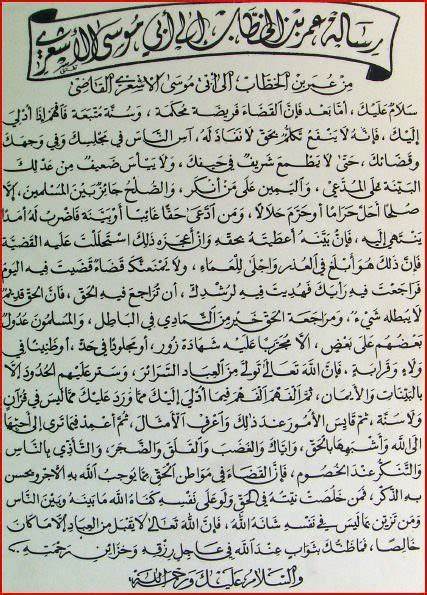 رسالة عمر بن الخطاب إلى أبي موسى الأشعري
من عمر بن الخطاب الى أبي موسى الأشعري القاضي
سلام عليك ، أما بعد فإن القضاء فريضة محكمة ، وسنة متبعة فافهم إذا أدلي
إليك ، فإنه لا ينفع تكلم بحق لا نفاذ له ، آس الناس في مجلسك وفي وجهك
وقضائك ، حتى لا يطمع شريف في حيفك ، ولا ييأس ضعيف من عدلك
البينة على المدعي ، واليمين على من أنكر ، والصلح جائز بين المسلمين ، إلا
صلحا أحل حراما أو حرم حلالا ، ومن ادعى حقا غائبا أو بينة فاضرب له أمدا
ينتهي إليه ، فإن بينه أعطيته بحقه وإن أعجزه ذلك استحللت عليه القضية
فإن ذلك هو أبلغ في العذر وأجلى للعماء ، ولا يمنعنك قضاء قضيت فيه اليوم
فراجعت فيه رأيك فهديت فيه لرشدك ، أن تراجع فيه الحق ، فإن الحق قديم
لا يبطله شيء ، ومراجعة الحق خير من التمادي في الباطل ، والمسلمون عدول
بعضهم على بعض ، الا مجربا عليه شهادة زور ، أو مجلودا في حد ، أو ظنينا في
ولاء وقرابة ، فإن الله تعالى تولى من العباد السرائر ، وستر عليهم الحدود إلا
بالبينات والأيمان ، ثم الفهم الفهم فيما أدلي إليك مما ورد عليك مما ليس في قرآن
ولا سنة ، ثم قايس الأمور عند ذلك واعرف الأمثال ، ثم اعمد فيما ترى إلى أحبها
الى الله وأشبهها بالحق ، وإياك والغضب والقلق والضجر ، والتأذي بالناس
والتنكر عند الخصوم ، فإن القضاء في مواطن الحق مما يوجب الله به الأجر ويحسن
به الذكر ، فمن خلصت نيته في الحق ولو على نفسه كفاه الله ما بينه وبين الناس
ومن تزين بما ليس في نفسه شانه الله ، فإن الله تعالى لا يقبل من العباد إلا ما كان
خالصا ، فما ظنك بثواب عند الله في عاجل رزقه وخزائن رحمته
والسلام عليك ورحمة الله